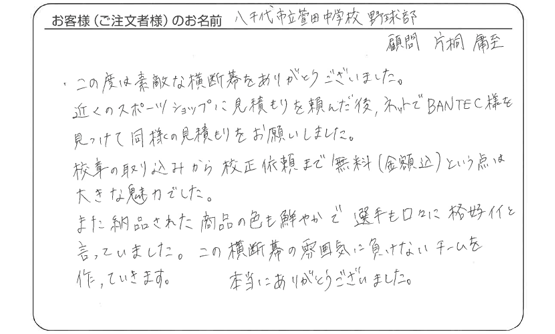 お客様（ご注文者様）のお名前 八千代市立萱田中学校 野球部
顧問 片桐 庸至
・この度は素敵な横断幕をありがとうございました。
近くのスポーツショップに見積もりを頼んだ後、ネットでBANTEC様を
見つけて同様の見積もりをお願いしました。
校章の取り込みから校正依頼まで無料（金額込）という点は
大きな魅力でした。
また納品された商品の色も鮮やかで選手も口々に格好イイと
言っていました。この横断幕の雰囲気に負けないチームを
作っていきます。 本当にありがとうございました。